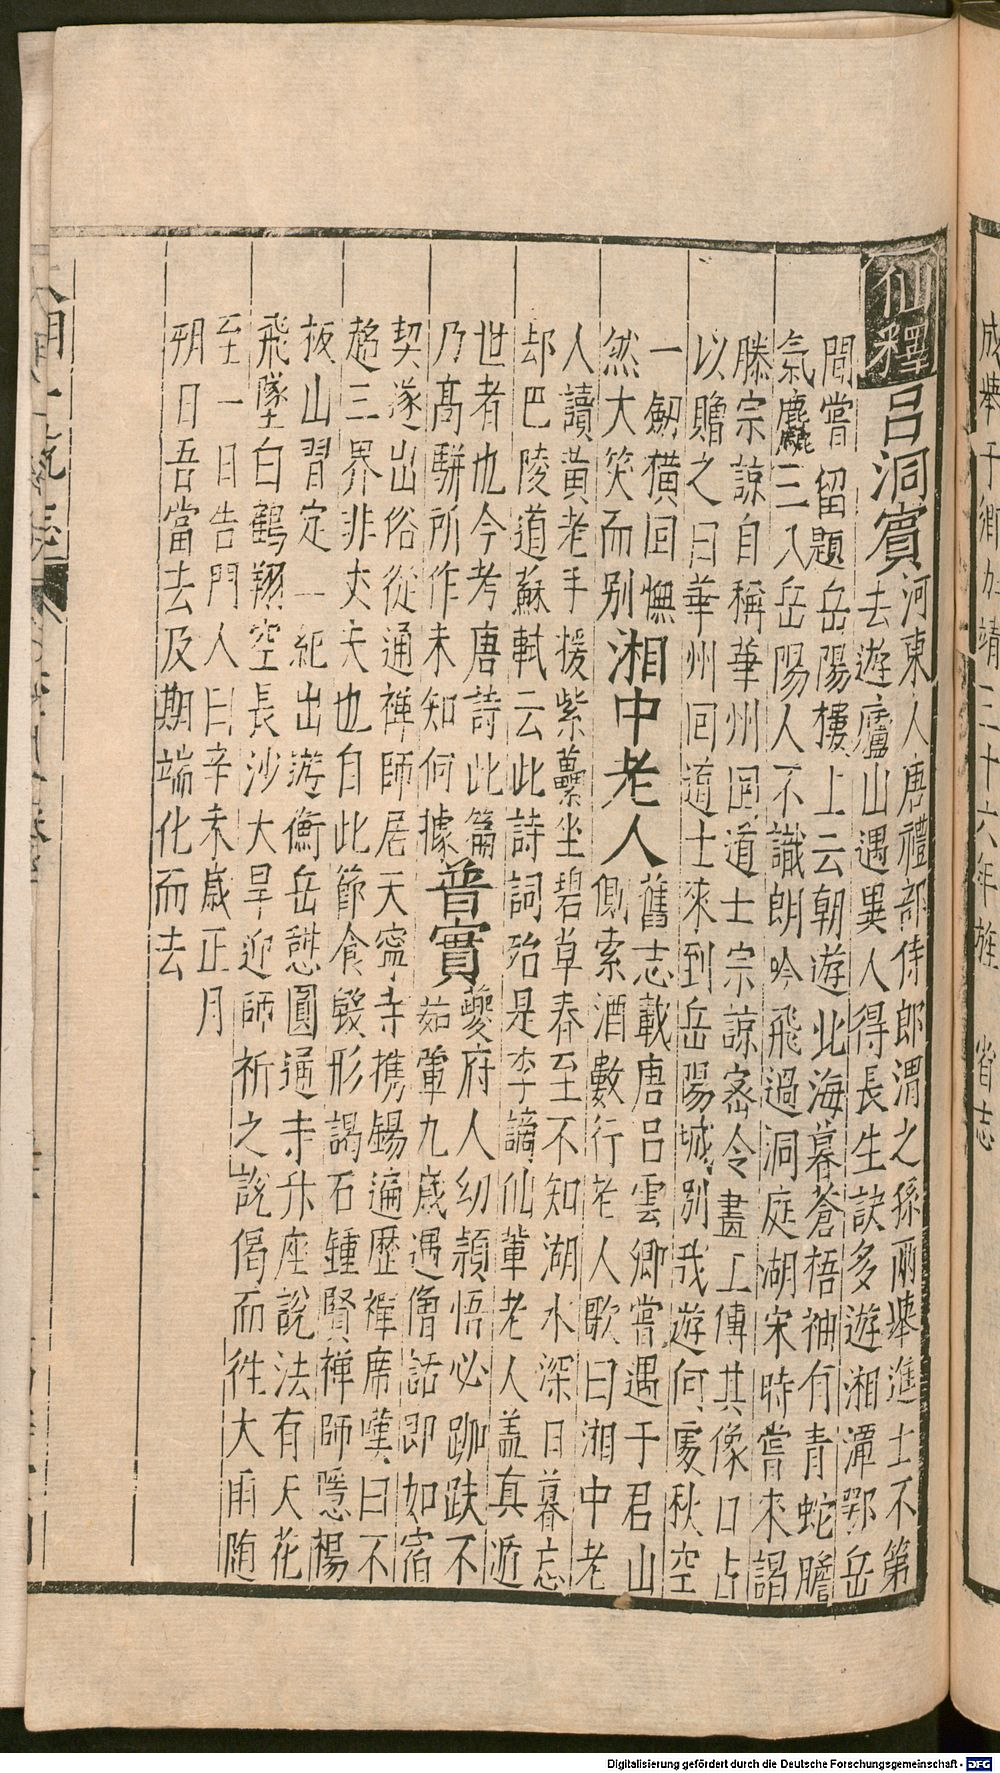 成舉于鄉 靖三十六年旌　省志
仙釋
呂洞賓
河東人唐禮部侍郎渭之孫兩舉進士不第
去遊廬山遇異人得長生訣多遊湘潭鄂岳
間嘗留題岳陽樓上云朝遊北海暮蒼梧袖有青蛇膽
氣麤三入岳陽人不識朗吟飛過洞庭湖宋時嘗來謁
滕宗諒自稱華州回道士宗諒密令畫工傳其像口占
以贈之曰華州回道士來到岳陽城別我遊何處秋空
一劒橫回憮
然大笑而別
湘中老人
舊志載唐呂雲卿嘗遇于君山
側索酒數行老人歌曰湘中老
人讀黃老手援紫藟坐碧草春至不知湖水深日暮忘
却巴陵道蘇軾云此詩詞殆是李謫仙輩老人蓋真遁
世者也今考唐詩此篇
乃髙駢所作未知何據
普實
夔府人幼頴悟必跏趺不
茹葷九歲遇僧話即如宿
契遂出俗從通禪師居天寧寺携錫遍歷禪席嘆曰不
趨三界非丈夫也自此節食毀形謁石鍾賢禪師隱楊
抜山習定一紀出遊衡岳憇圓通寺升座說法有天花
飛墜白鶴翔空長沙大旱迎師祈之說偈而徃大雨隨
至一日告門人曰辛未歲正月
朔日吾當去及期端化而去
Digitalisierung gefördert durch die Deutsche Forschungsgemeinschaft - DFG